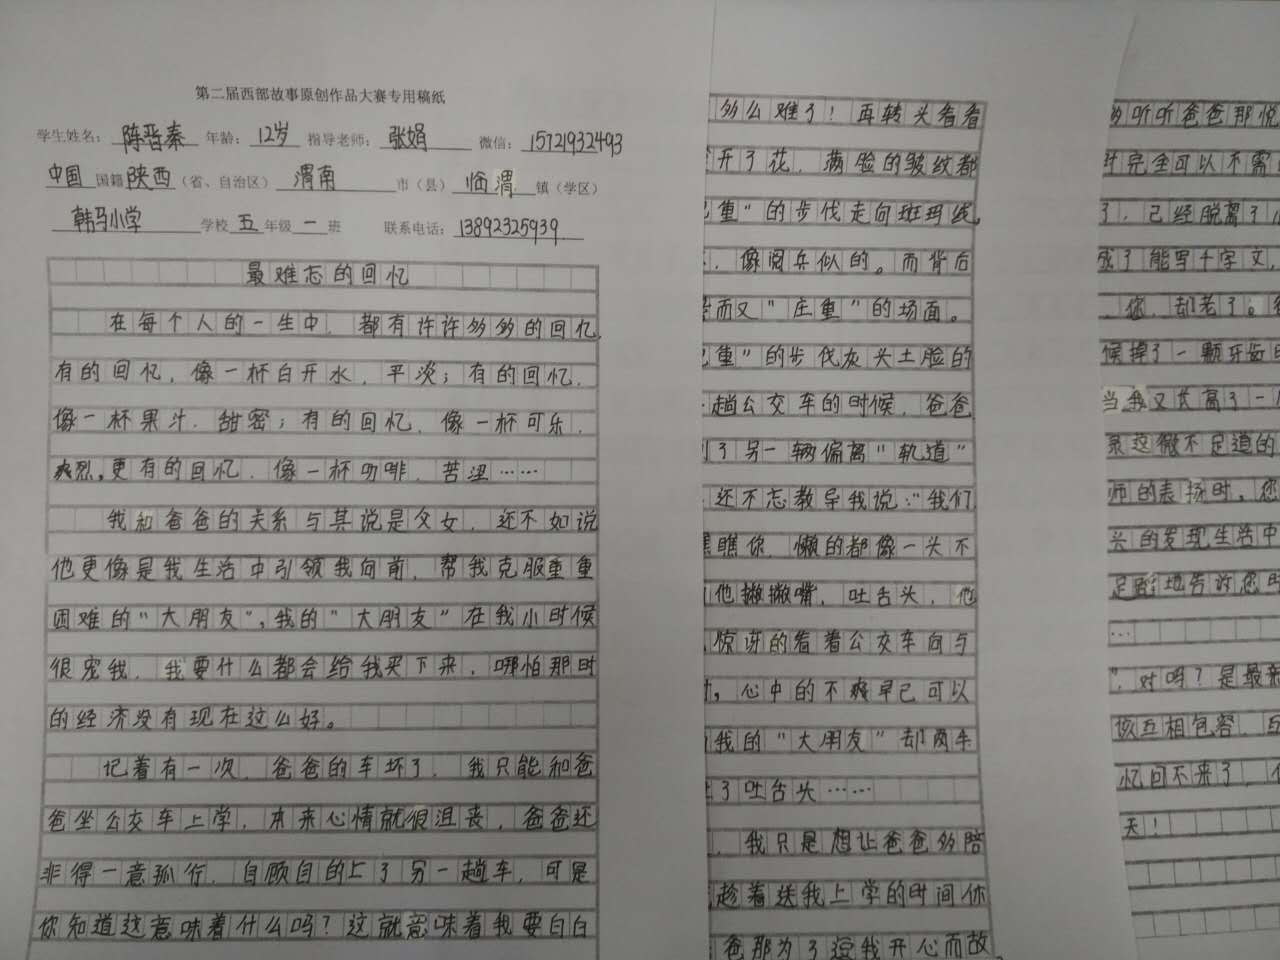 第二届西部故事原创作品大赛专用稿纸
学生姓名：陈晋秦 年龄：12岁 指导老师：张娟 微信：15721932493
中国国籍陕西（省、自治区）渭南市（县）临渭镇（学区）
韩马小学学校五年级一班 联系电话：13892325939
最难忘的回忆
在每个人的一生中，都有许许多多的回忆，
有的回忆，像一杯白开水，平淡；有的回忆，
像一杯果汁，甜密；有的回忆，像一杯可乐，
爽烈，更有的回忆，像一杯咖啡，苦涩……
我和爸爸的关系与其说是父女，还不如说
他更像是我生活中引领我向前，帮我克服重重
困难的“大朋友”，我的“大朋友”在我小时候
很宠我，我要什么都会给我买下来，哪怕那时
的经济没有现在这么好。
记着有一次，爸爸的车坏了，我只能和爸
爸坐公交车上学，本来心情就很沮丧，爸爸还
非得一意孤行，自顾自的上了另一趟车，可是
你知道这意味着什么吗？这就意味着我要白白
多么难了！再转头看看
开了花，满脸的皱纹都
重”的步伐走向斑玛线。
，像阅兵似的。而背后
而又“庄重”的场面。
重”的步伐灰头土脸的
趟公交车的时候，爸爸
了另一辆偏离“轨道”
还不忘教导我说：“我们
瞧你，懒的都像一头不
他撇撇嘴，吐舌头，他
惊讶的看着公交车向与
，心中的不爽早已可以
我的“大朋友”却两手
了吐舌头……
，我只是想让爸爸多陪
趁着送我上学的时间休
爸那为了逗我开心而故
听听爸爸那悦
完全可以不需
了，已经脱离了
成了能写千字文，
，您，却老了。
候掉了一颗牙齿
当我又长高了一
录这微不足道的
师的表扬时，您
头的发现生活中
地告诉您时
…
”，对吗？是最
该互相包容，
忆回不来了，
天！